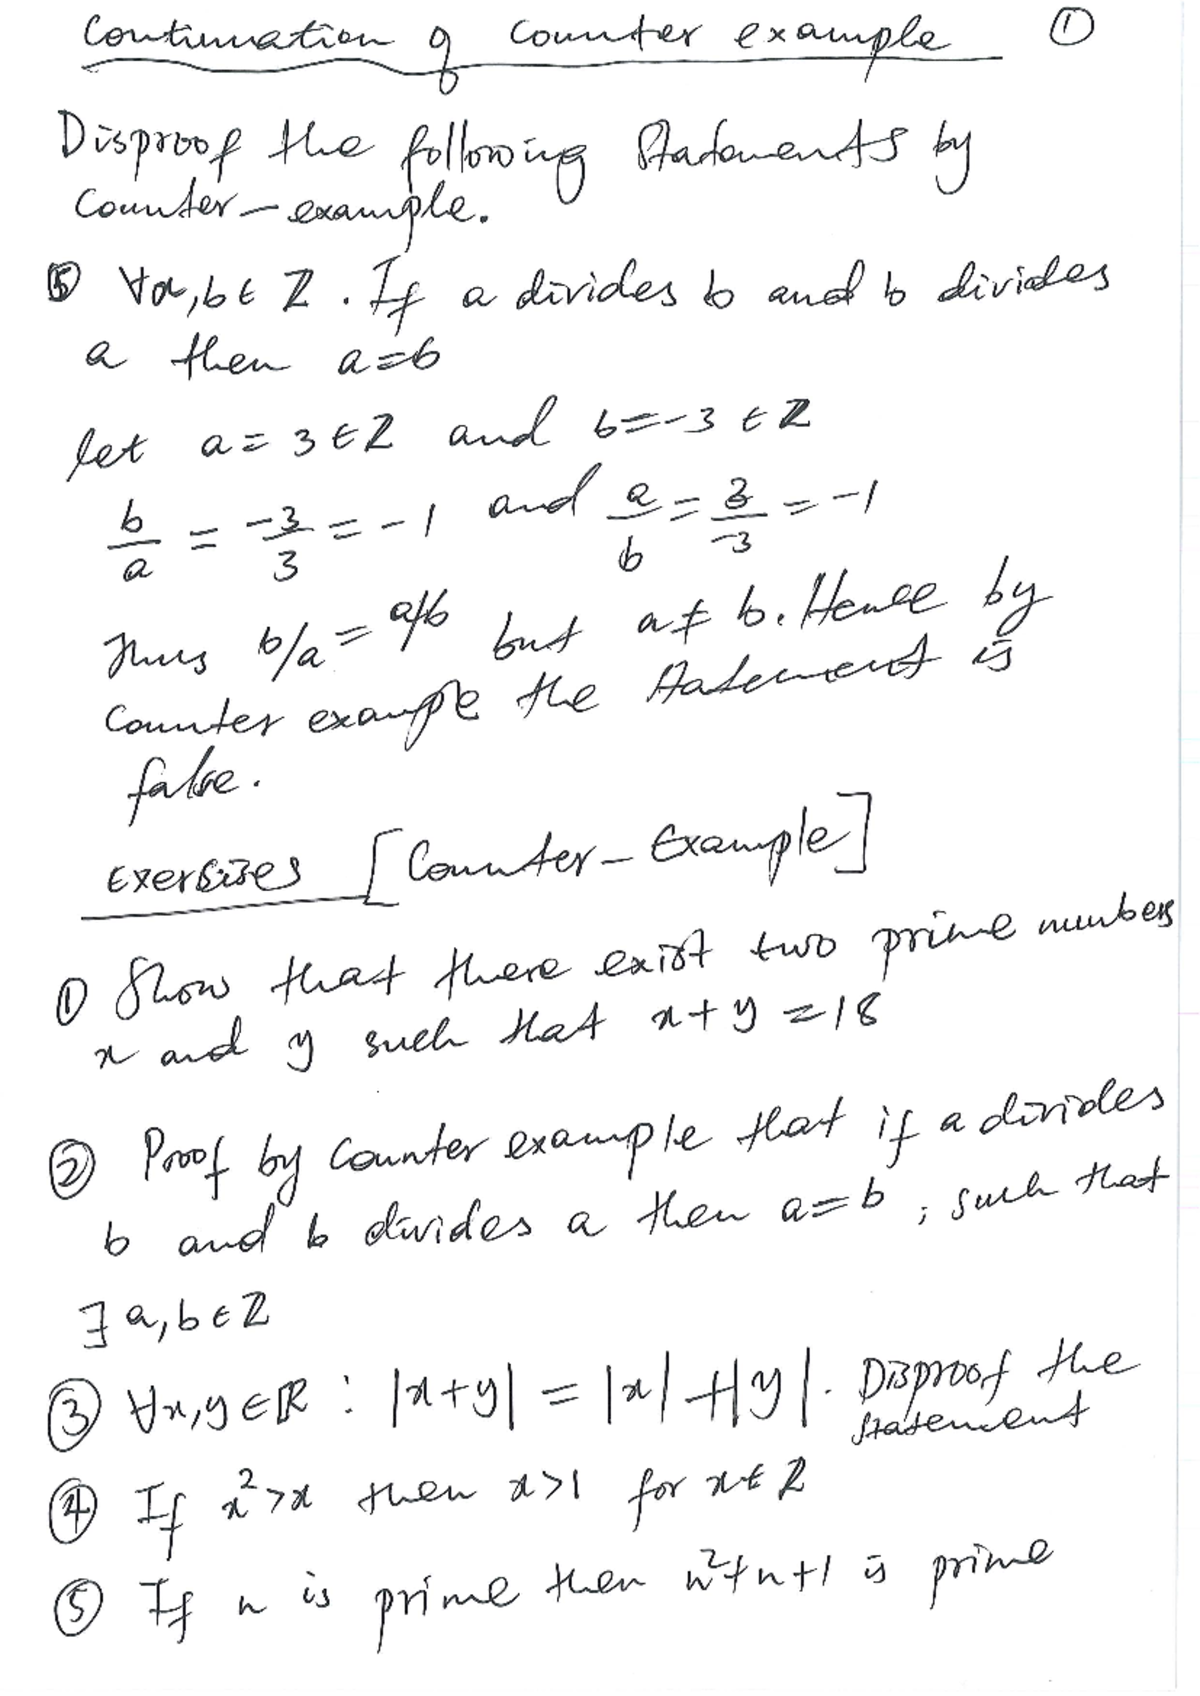 Continuation of Counter example ①
Disproof the following Statements by
Counter-example.
⑤ ∀a,b ∈ ℤ. If a divides b and b divides
a then a=b
let a = 3 ∈ ℤ and b = -3 ∈ ℤ
b/a = -3/3 = -1 and a/b = 3/-3 = -1
Thus b/a = a/b but a ≠ b. Hence by
Counter example the Statement is
false.
Exersizes [Counter-Example]
① Show that there exist two prime numbers
x and y such that x+y = 18
② Proof by Counter example that if a divides
b and b divides a then a=b, such that
∃ a,b ∈ ℤ
③ ∀x,y ∈ ℝ : |x+y| = |x|+|y|. Disproof the
Statement
④ If x² > x then x > 1 for x ∈ ℤ
⑤ If n is prime then n²+n+1 is prime